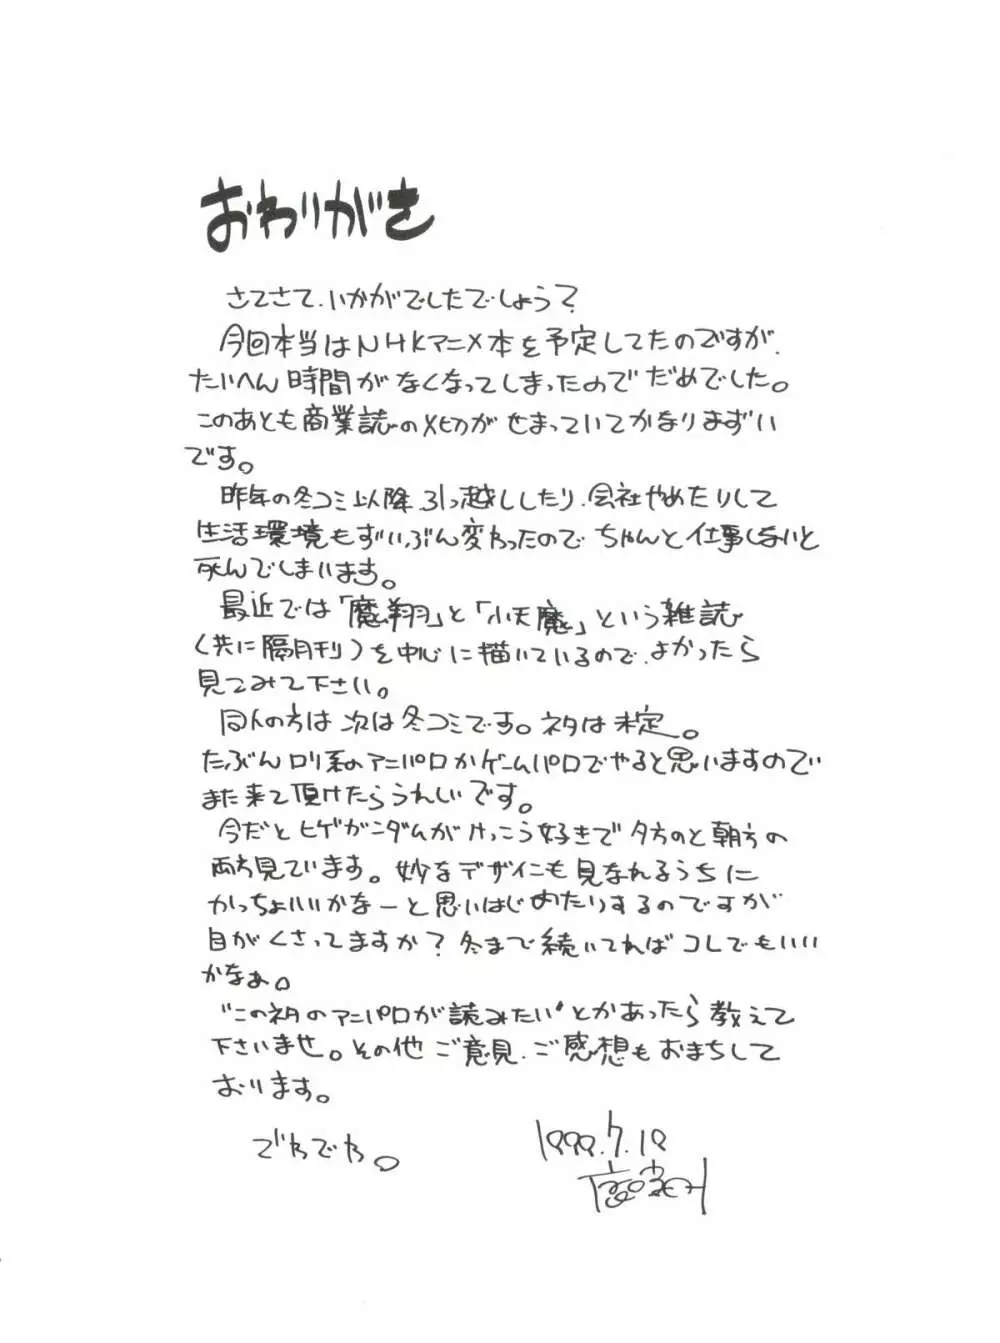 おわりがき
さてさて、いかがでしたでしょう?
今回本当はNHKアニメ本を予定してたのですが、
たいへん時間がなくなってしまったのでだめでした。
このあとも商業誌の〆切がせまっていてかなりまずい
です。
昨年の冬コミ以降、引っ越ししたり、会社やめたりして
生活環境もずいぶん変わったので ちゃんと仕事しないと
死んでしまいます。
最近では「魔翔」と「小天魔」という雑誌
(共に隔月刊)を中心に描いているので、よかったら
見てみて下さい。
同人の方は 次は冬コミです。ネタは未定。
たぶんロリ系のアニパロかゲームパロでやると思いますので
また来て頂けたらうれしいです。
今だとヒゲガンダムがけっこう好きで夕方のと朝方の
両方見ています。妙なデザインも見なれるうちに
かっちょいいかなーと思いはじめたりするのですが
目がくさってますか?冬まで続いてればコレでもいい
かなぁ。
"このネタのアニパロが読みたい"とかあったら教えて
下さいませ。その他 ご意見、ご感想もおまちして
おります。
でわでわ。
1999.7.19